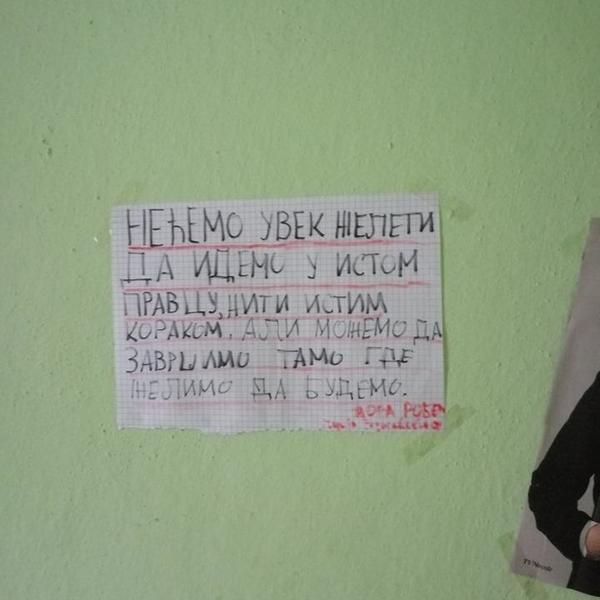 НЕЋЕМО УВЕК ЖЕЛЕТИ
ДА ИДЕМО У ИСТОМ
ПРАВЦУ, НИТИ ИСТИМ
КОРАКОМ. АЛИ МОЖЕМО ДА
ЗАВРШИМО ТАМО ГДЕ
ЖЕЛИМО ДА БУДЕМО.